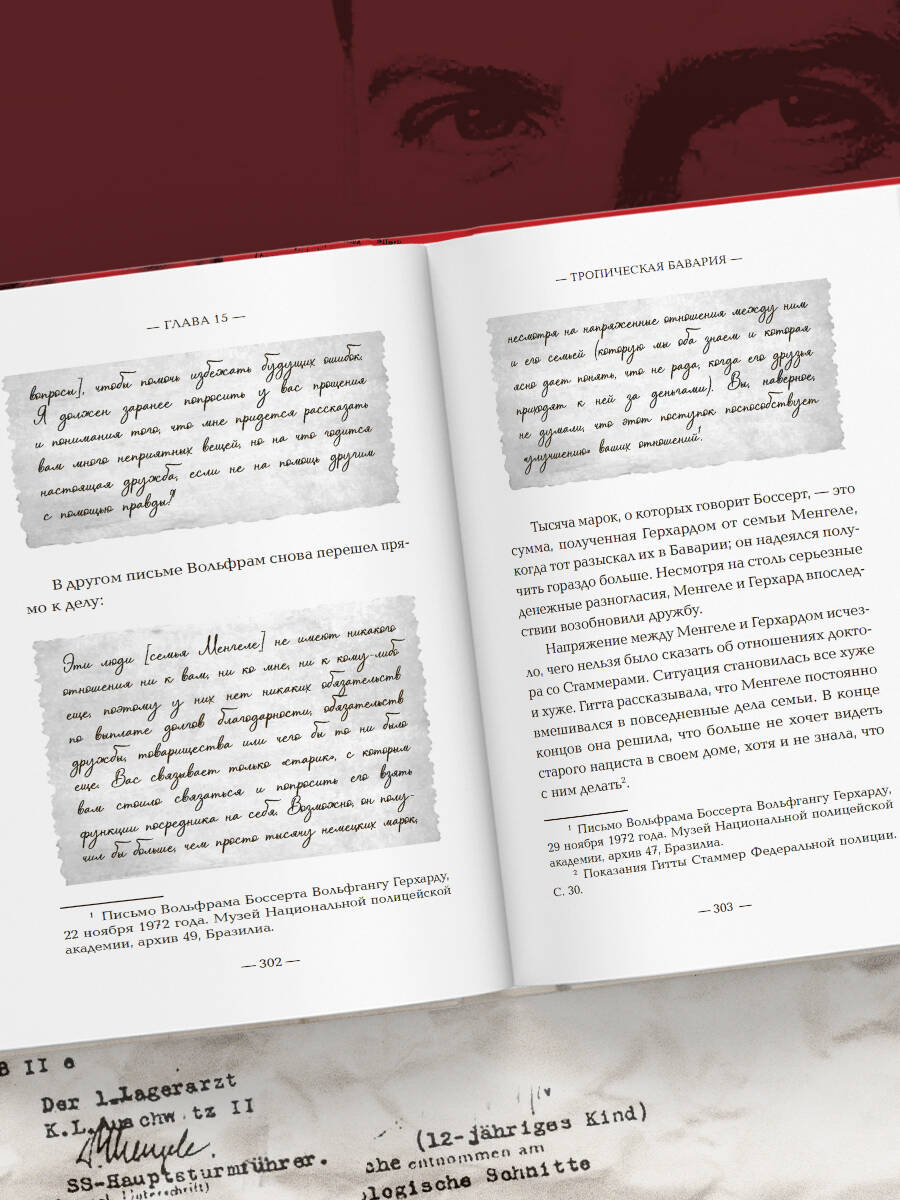 — ГЛАВА 15 —
вопросы], чтобы помочь избежать будущих ошибок.
Я должен заранее попросить у вас прощения
и понимания того, что мне придется рассказать
вам много неприятных вещей, но на что годится
настоящая дружба, если не на помощь другим
с помощью правды?¹
В другом письме Вольфрам снова перешел пря-
мо к делу:
Эти люди [семья Менгеле] не имеют никакого
отношения ни к вам, ни ко мне, ни к кому-либо
еще, поэтому у них нет никаких обязательств
по выплате долгов благодарности, обязательств
дружбы, товарищества или чего бы то ни было
еще. Вас связывает только «старик», с которым
вам стоило связаться и попросить его взять
функции посредника на себя. Возможно, он полу-
чил бы больше, чем просто тысячу немецких марок,
¹ Письмо Вольфрама Боссерта Вольфгангу Герхарду,
22 ноября 1972 года. Музей Национальной полицейской
академии, архив 49, Бразилиа.
— 302 —
— ТРОПИЧЕСКАЯ БАВАРИЯ —
несмотря на напряженные отношения между ним
и его семьей (которую мы оба знаем и которая
ясно дает понять, что не рада, когда его друзья
приходят к ней за деньгами). Вы, наверное,
не думали, что этот поступок поспособствует
«улучшению» ваших отношений¹.
Тысяча марок, о которых говорит Боссерт, — это
сумма, полученная Герхардом от семьи Менгеле,
когда тот разыскал их в Баварии; он надеялся полу-
чить гораздо больше. Несмотря на столь серьезные
денежные разногласия, Менгеле и Герхард впослед-
ствии возобновили дружбу.
Напряжение между Менгеле и Герхардом исчез-
ло, чего нельзя было сказать об отношениях докто-
ра со Стаммерами. Ситуация становилась все хуже
и хуже. Гитта рассказывала, что Менгеле постоянно
вмешивался в повседневные дела семьи. В конце
концов она решила, что больше не хочет видеть
старого нациста в своем доме, хотя и не знала, что
с ним делать².
¹ Письмо Вольфрама Боссерта Вольфгангу Герхарду,
29 ноября 1972 года. Музей Национальной полицейской
академии, архив 47, Бразилиа.
² Показания Гитты Стаммер Федеральной полиции.
С. 30.
— 303 —
B II e
Der 1.Lagerarzt
K.L.Auschwitz II
Mengele.
SS-Hauptsturmführer.
Unterschrift)
(12-jähriges Kind)
che entnommen am
ologische Schnitte